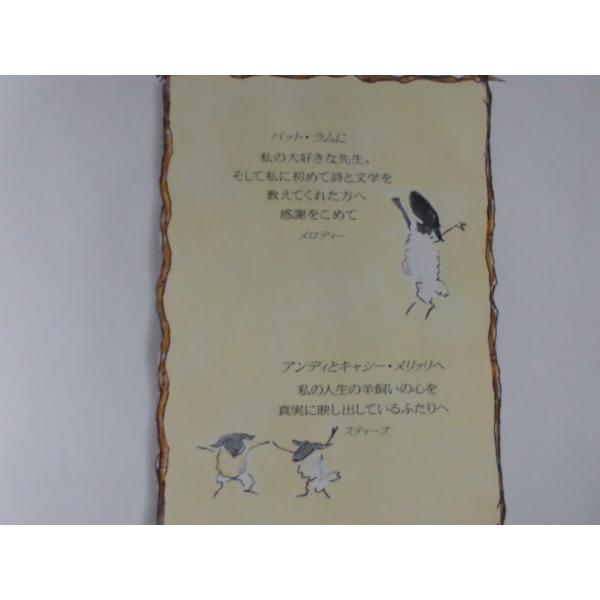 パット・ラムに
私の大好きな先生、
そして私に初めて詩と文学を
教えてくれた方へ
感謝をこめて
メロディー
アンディとキャシー・メリッリへ
私の人生の羊飼いの心を
真実に映し出しているふたりへ
スティーブ